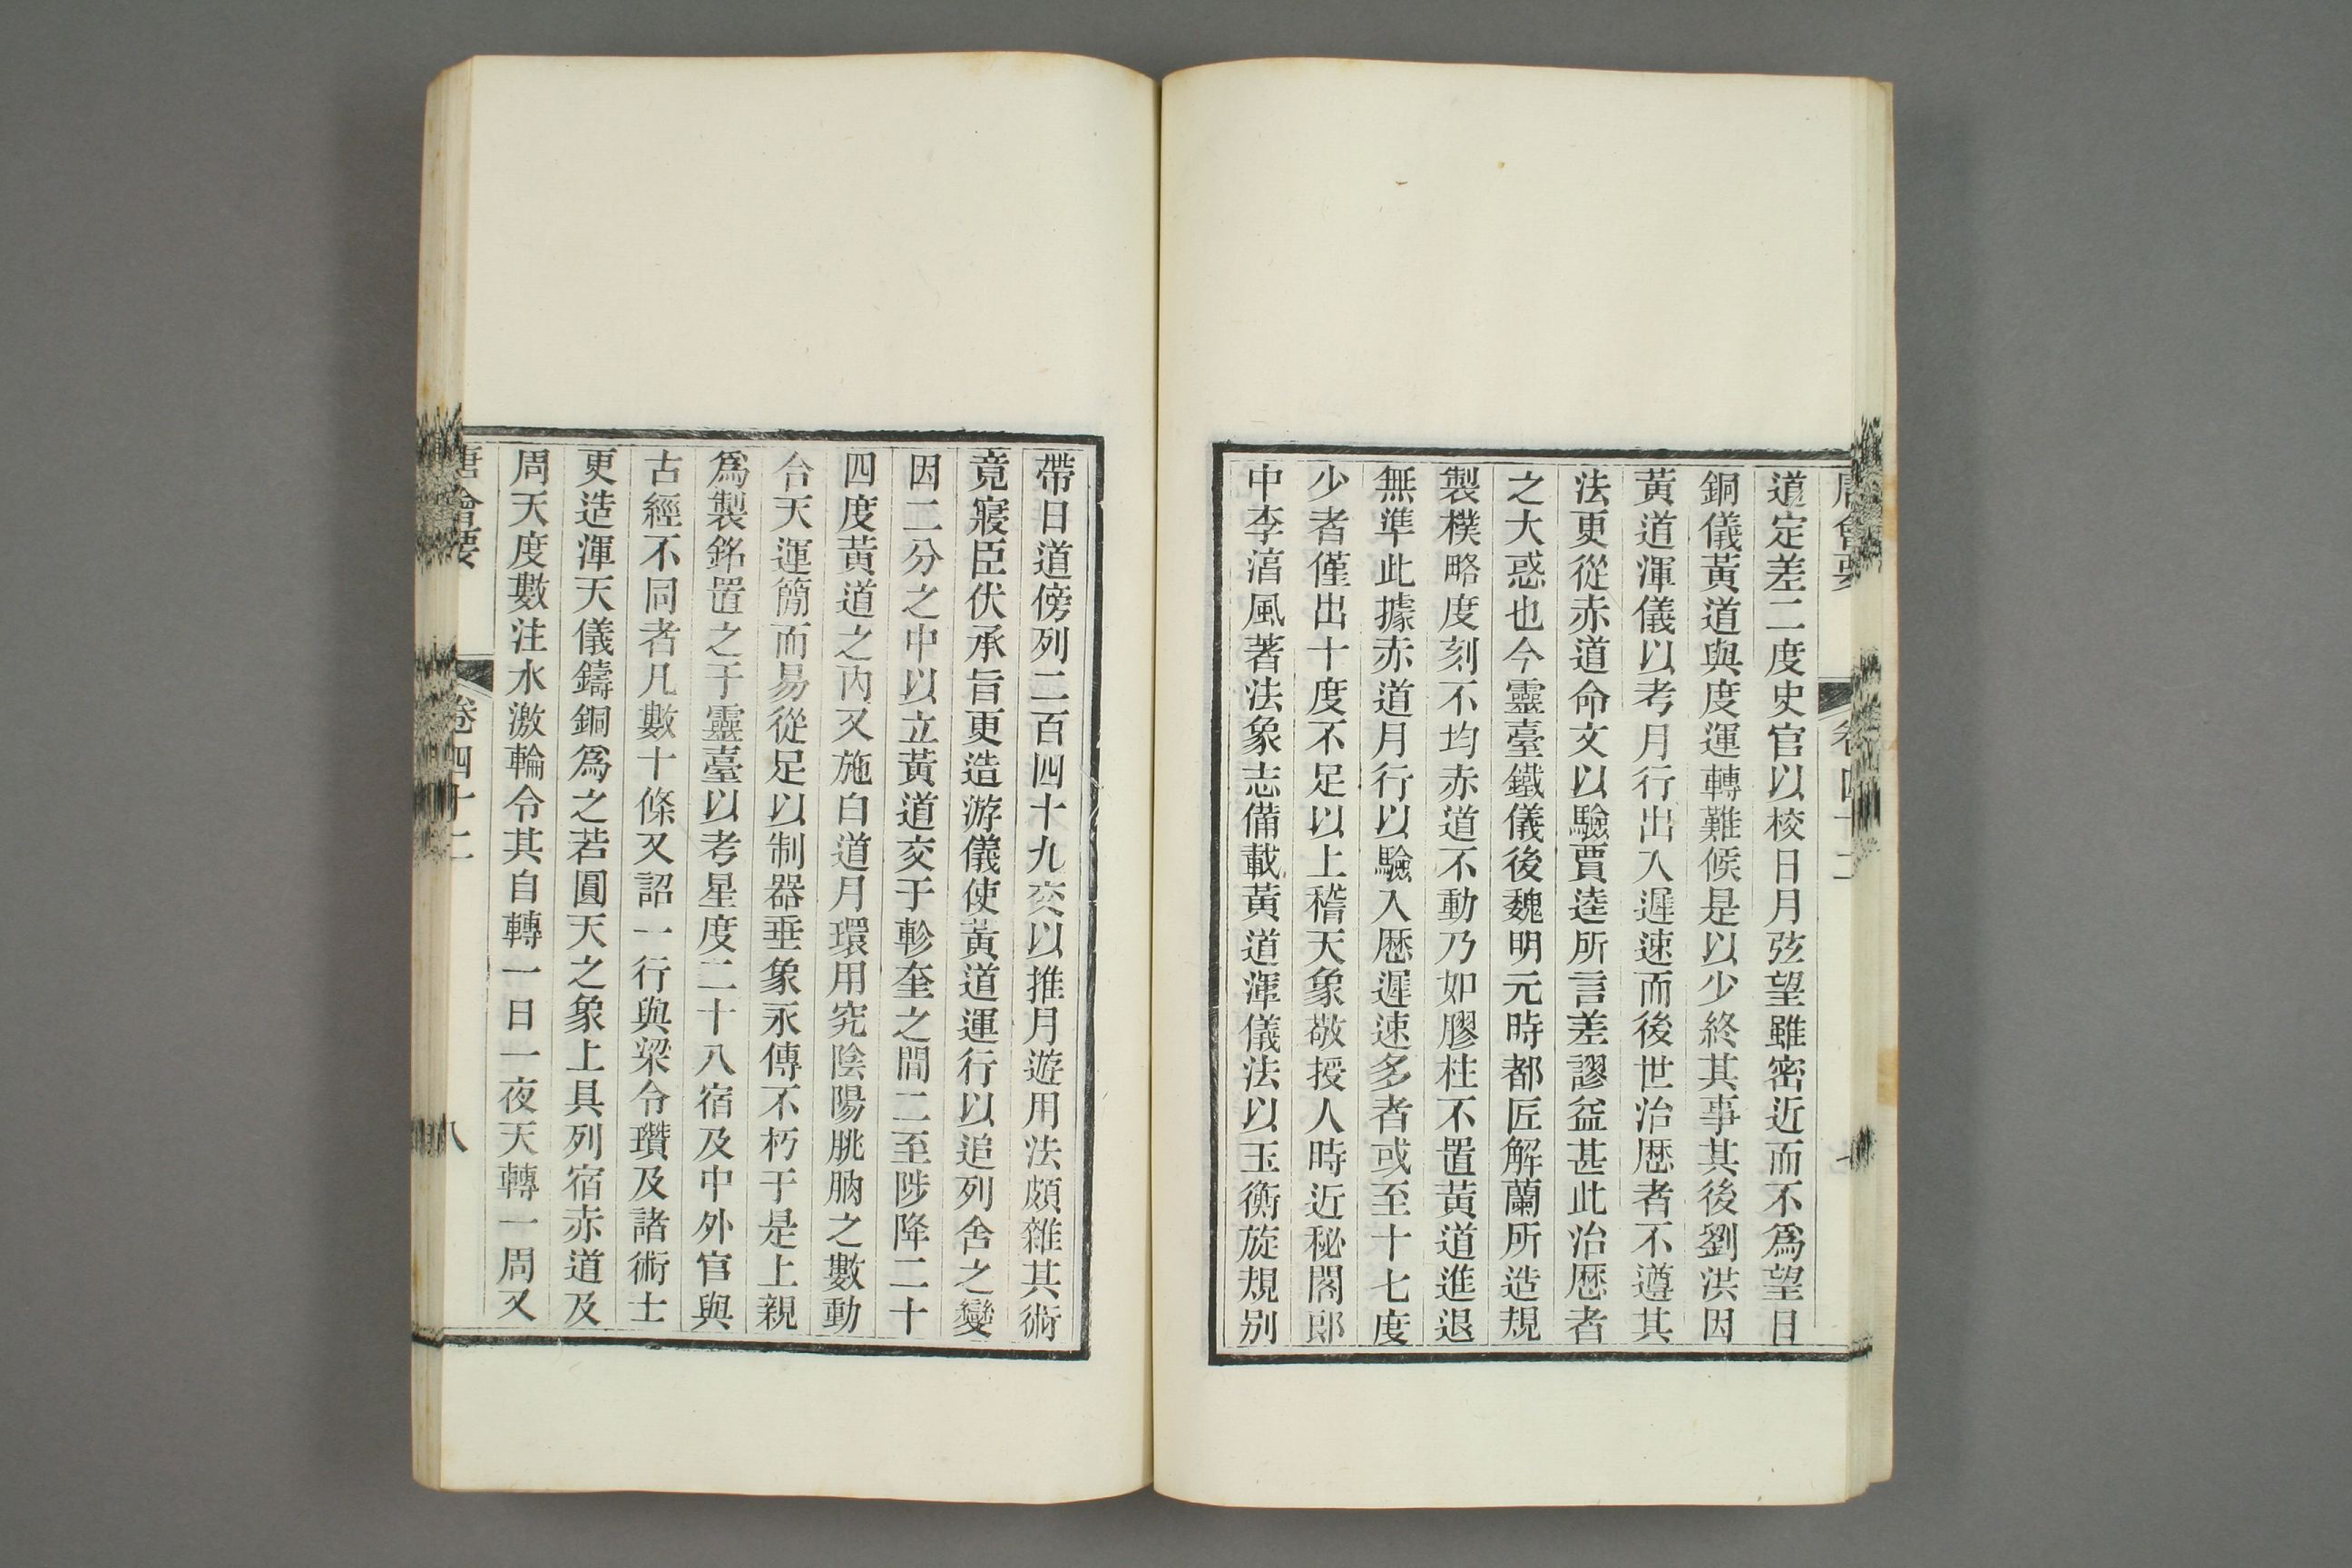 唐會要 卷四十二 七
道定差二度史官以校日月弦望雖密近而不爲望日
銅儀黃道與度運轉難候是以少終其事其後劉洪因
黃道渾儀以考月行出入遲速而後世治歷者不遵其
法更從赤道命文以驗賈逵所言差謬益甚此治歷者
之大惑也今靈臺鐵儀後魏明元時都匠解蘭所造規
製樸略度刻不均赤道不動乃如膠柱不置黃道進退
無準此據赤道月行以驗入歷遲速多者或至十七度
少者僅出十度不足以上稽天象敬授人時近秘閣郎
中李湻風著法象志備載黃道渾儀法以玉衡旋規別
帶日道傍列二百四十九交以推月遊用法頗雜其術
竟寢臣伏承旨更造游儀使黃道運行以追列舍之變
因二分之中以立黃道交于軫奎之間二至陟降二十
四度黃道之內又施白道月環用究陰陽朓朒之數動
合天運簡而易從足以制器垂象永傳不朽于是上親
爲製銘置之于靈臺以考星度二十八宿及中外官與
古經不同者凡數十條又詔一行與梁令瓚及諸術士
更造渾天儀鑄銅爲之若圓天之象上具列宿赤道及
周天度數注水激輪令其自轉一日一夜天轉一周又
唐會要 卷四十二 八